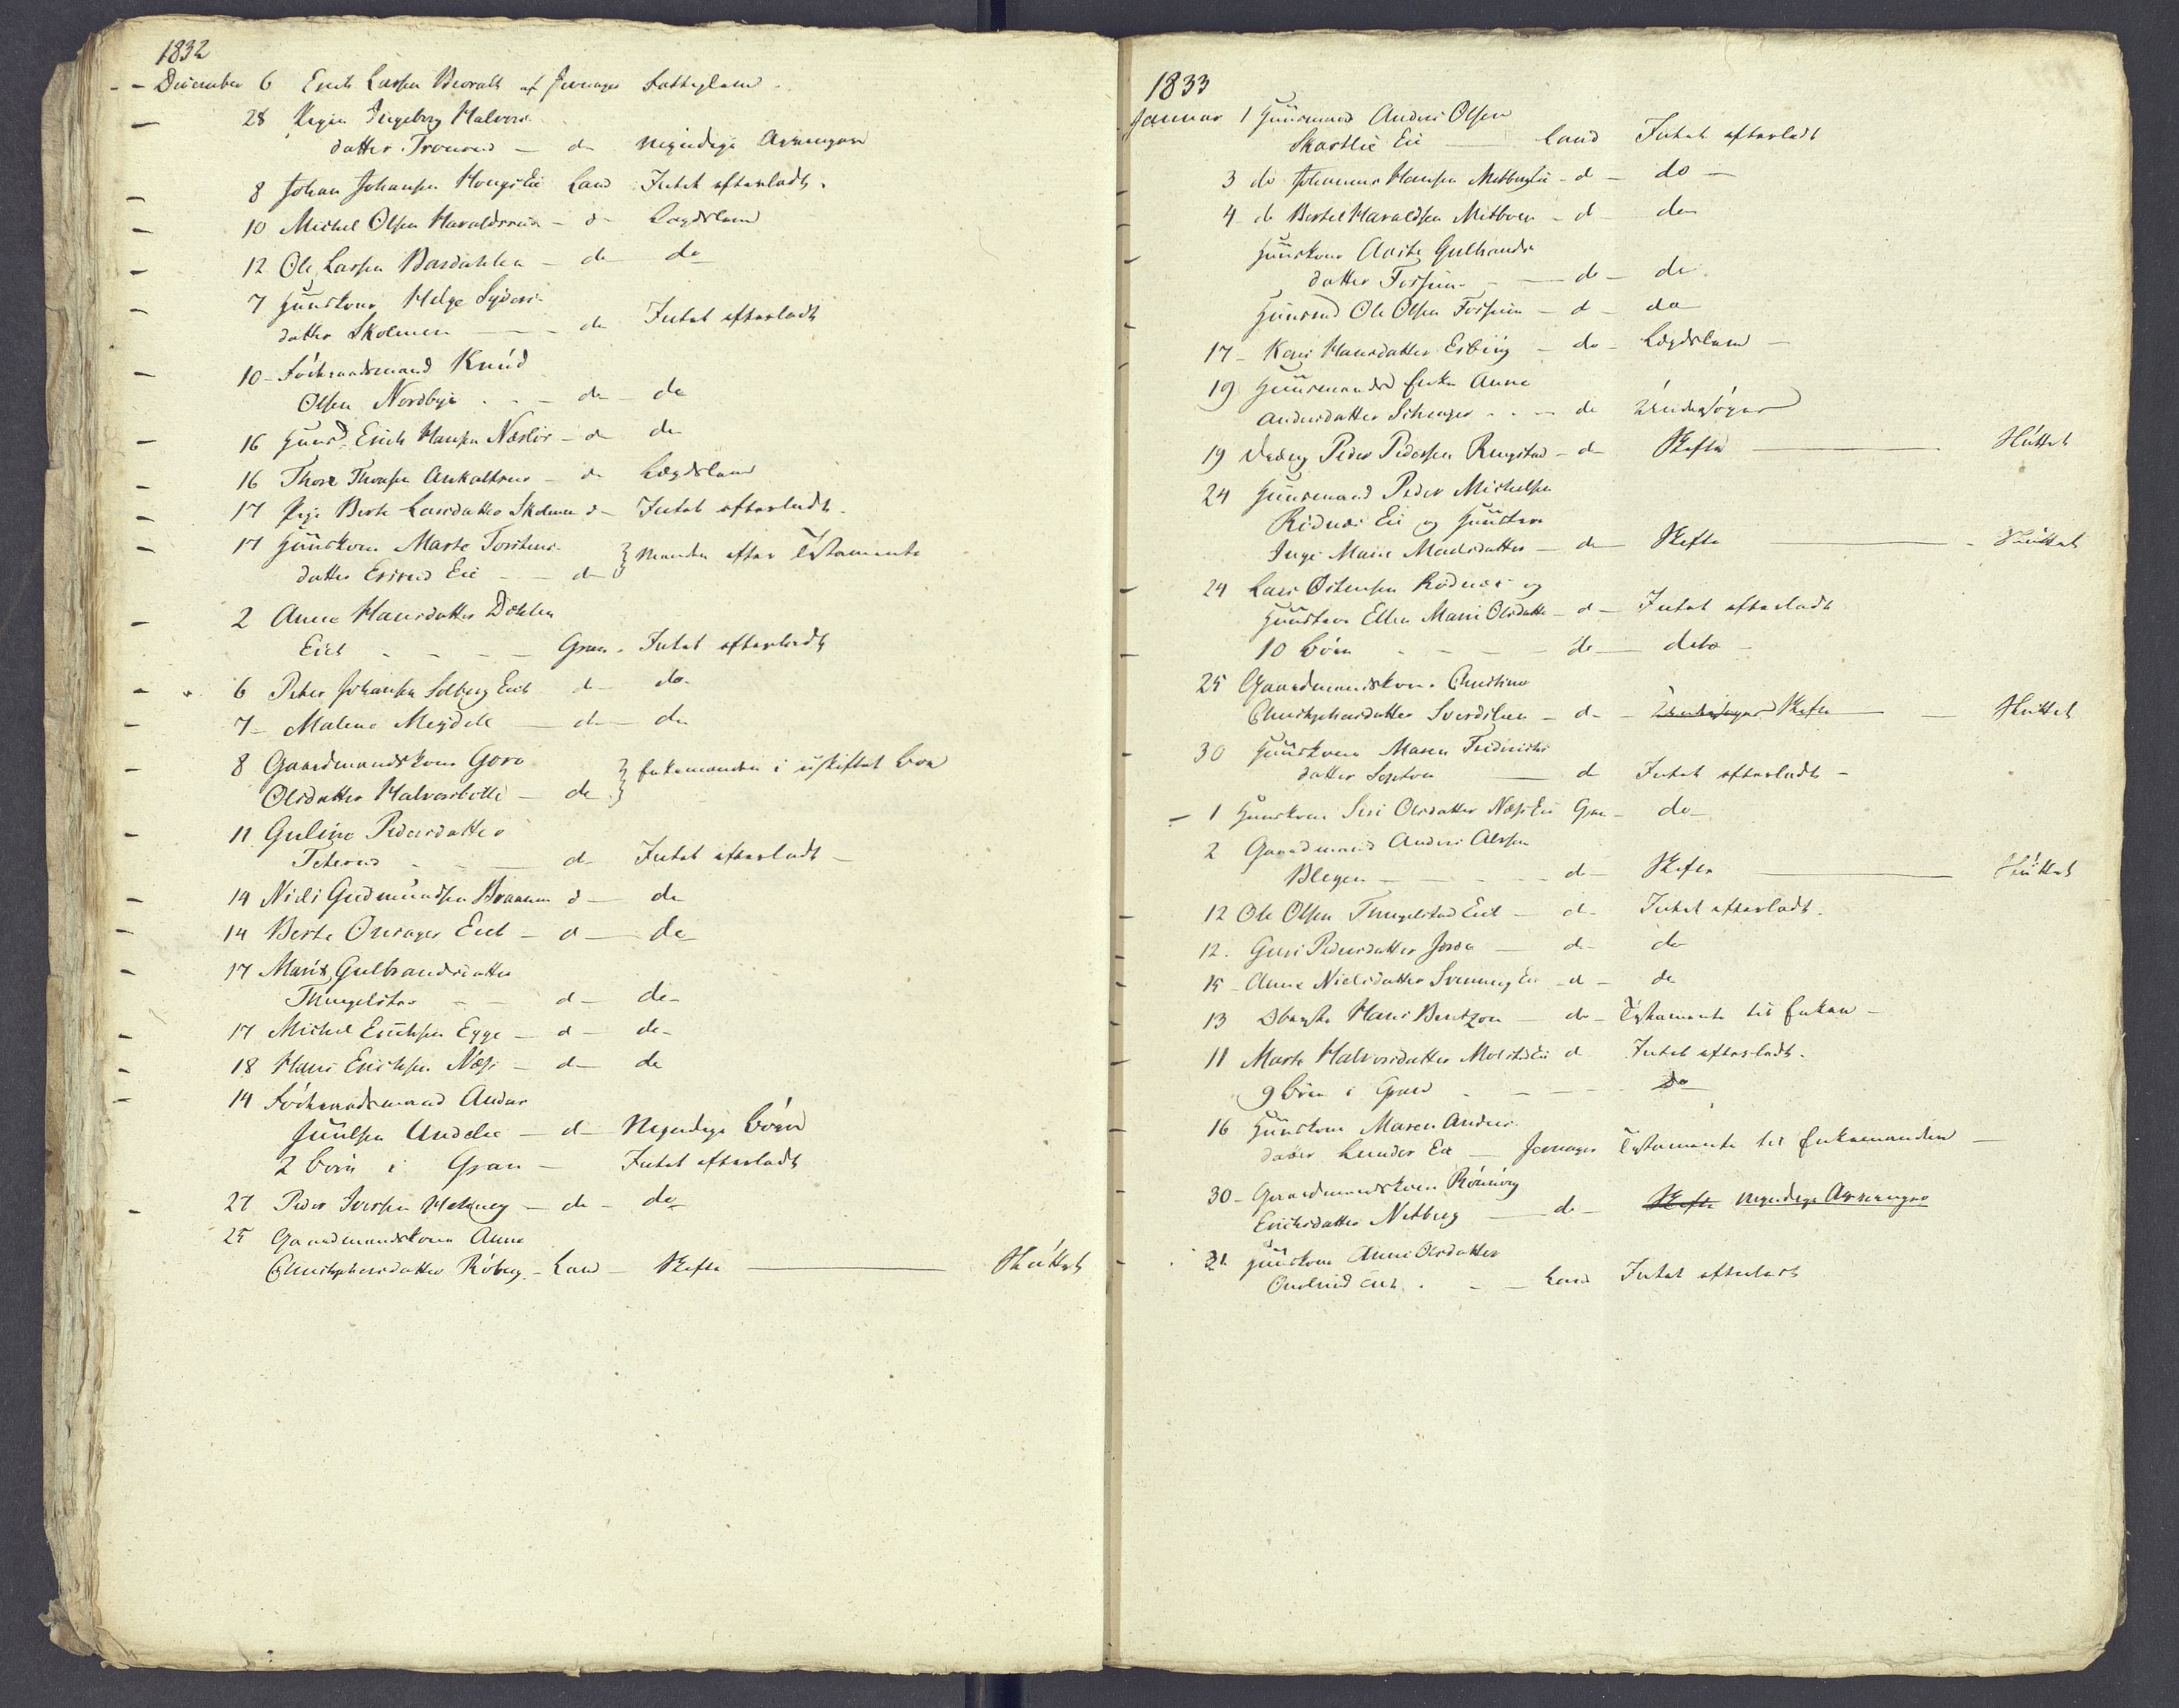 1832
December 6 Erich Larsen Bioralt af Jevnager Fattiglem
28 Pigen Ingeborg Halvors
datter Trovend - do Myndige Arvinger
8 Johan Johansen Hougs Eie Land Intet efterladt.
10 Michel Olsen Haraldsrud - do Lægdslem
12 Ole Larsen Bardahlen - do do
7 Huuskone Helge Syvers
datter Skolmen - do Intet efterladt
10 - Föderaadsmand Knud
Olsen Nordbye - do - do
16 Huusmd Erich Hansen Næslie - do do
16 Thore Thorsen Askaltrud - do Lægdslem
17 Pige Berte Larsdatter Skolmen do Intet efterladt.
17 Huuskone Marte Torstens
datter Esirud Eie - do } Manden efter Testamente
2 Anne Hansdatter Dæhlen
Eiet - Gran - Intet efterladt
6 Peter Johansen Solberg Eiet do - do
7 - Malene Meydell - do - do
8 Gaardmandskone Goro
Olsdatter Halvorsbølle - do } Enkemanden i uskiftet Boe
11 Guline Pedersdatter
Teterud - do - Intet efterladt
14 Niels Gudmundsen Braanen do - do
14 Berte Onsager Eiet - do - do
17 Marit Gulbrandsdatter
Thingelstad - do - do -
17 Michel Erichsen Egge - do - do -
18 Hans Erichsen Næss - do - do
14 Föderaadsmand Anders
Juulsen Undelie - do - Myndige Börn
2 Börn i Gran - Intet efterladt
27 Peder Iversen Helgney - do - do
25 Gaardmandskone Anne
Christophersdatter Röberg - Land - Skifte - Sluttet
1833
Januar 1 Huusmand Anders Olsen
Skartlie Eie - Land Intet efterladt
3 do Johannes Hansen Metberg Eie - do - do -
4 - do Bertel Haraldsen Metboen - do - do
Huuskone Aaste Gulbrands
datter Fossum - do - do
Huusmd Ole Olsen Fossum - do - do
17 - Kari Hansdatter Esbiug - do - Lægdslem -
19 Huusmands Enke Anne
Andersdatter Schrager - do Undersöges
19 Dreng Peder Pedersen Ringstad - do Skifte - Sluttet
24 Huusmand Peder Michelsen
Rödnæs Eie og Hustru
Inge Marie Madsdatter - do - Skifte - Sluttet
24 Lars Östensen Rödnæs og
Hustru Ellen Marie Olsdatter - do - Intet efterladt
10 Börn - do - dito -
25 Gaardmandskone Christine
Christophersdatter Sverdsluen - do - Undersöges Skifte - Sluttet
30 Huuskone Maren Fredrichs
datter - do Intet efterladt -
1 Huuskone Siri Olsdatter Næss Eie Gran - do -
2 Gaardmand Anders Alssen
Blegen - do - Skifte - Sluttet
12 Ole Olsen Thingelstad Eiet - do - Intet efterladt.
12. Guri Pedersdatter Horn - do - do
15 - Anne Nielsdatter Svenning Eie - do - do
13 Obrste Hans Bentzon - do - Testamente til Enken -
11 Marte Halvorsdatter Molstad Eie do Intet efterladt.
9 Börn i Gran - do
16 Huuskone Maren Anders
datter Lunder Eie - Jevnager Testamente til Enkemanden -
30 - Gaardmandskone Rönnoug
Erichsdatter Netberg - do - Skifte Myndige Arvinger
31. Huuskone Anne Olsdatter
Onslrud Eiet. - Land Intet efterladt